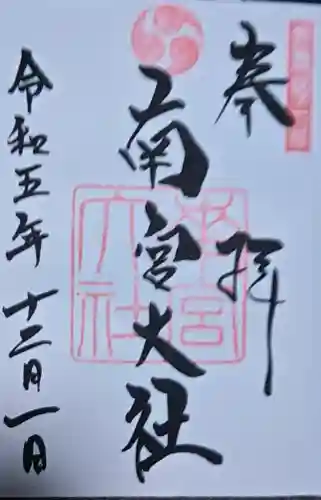 奉拝
南宮大社
令和五年十二月一日
南宮大社